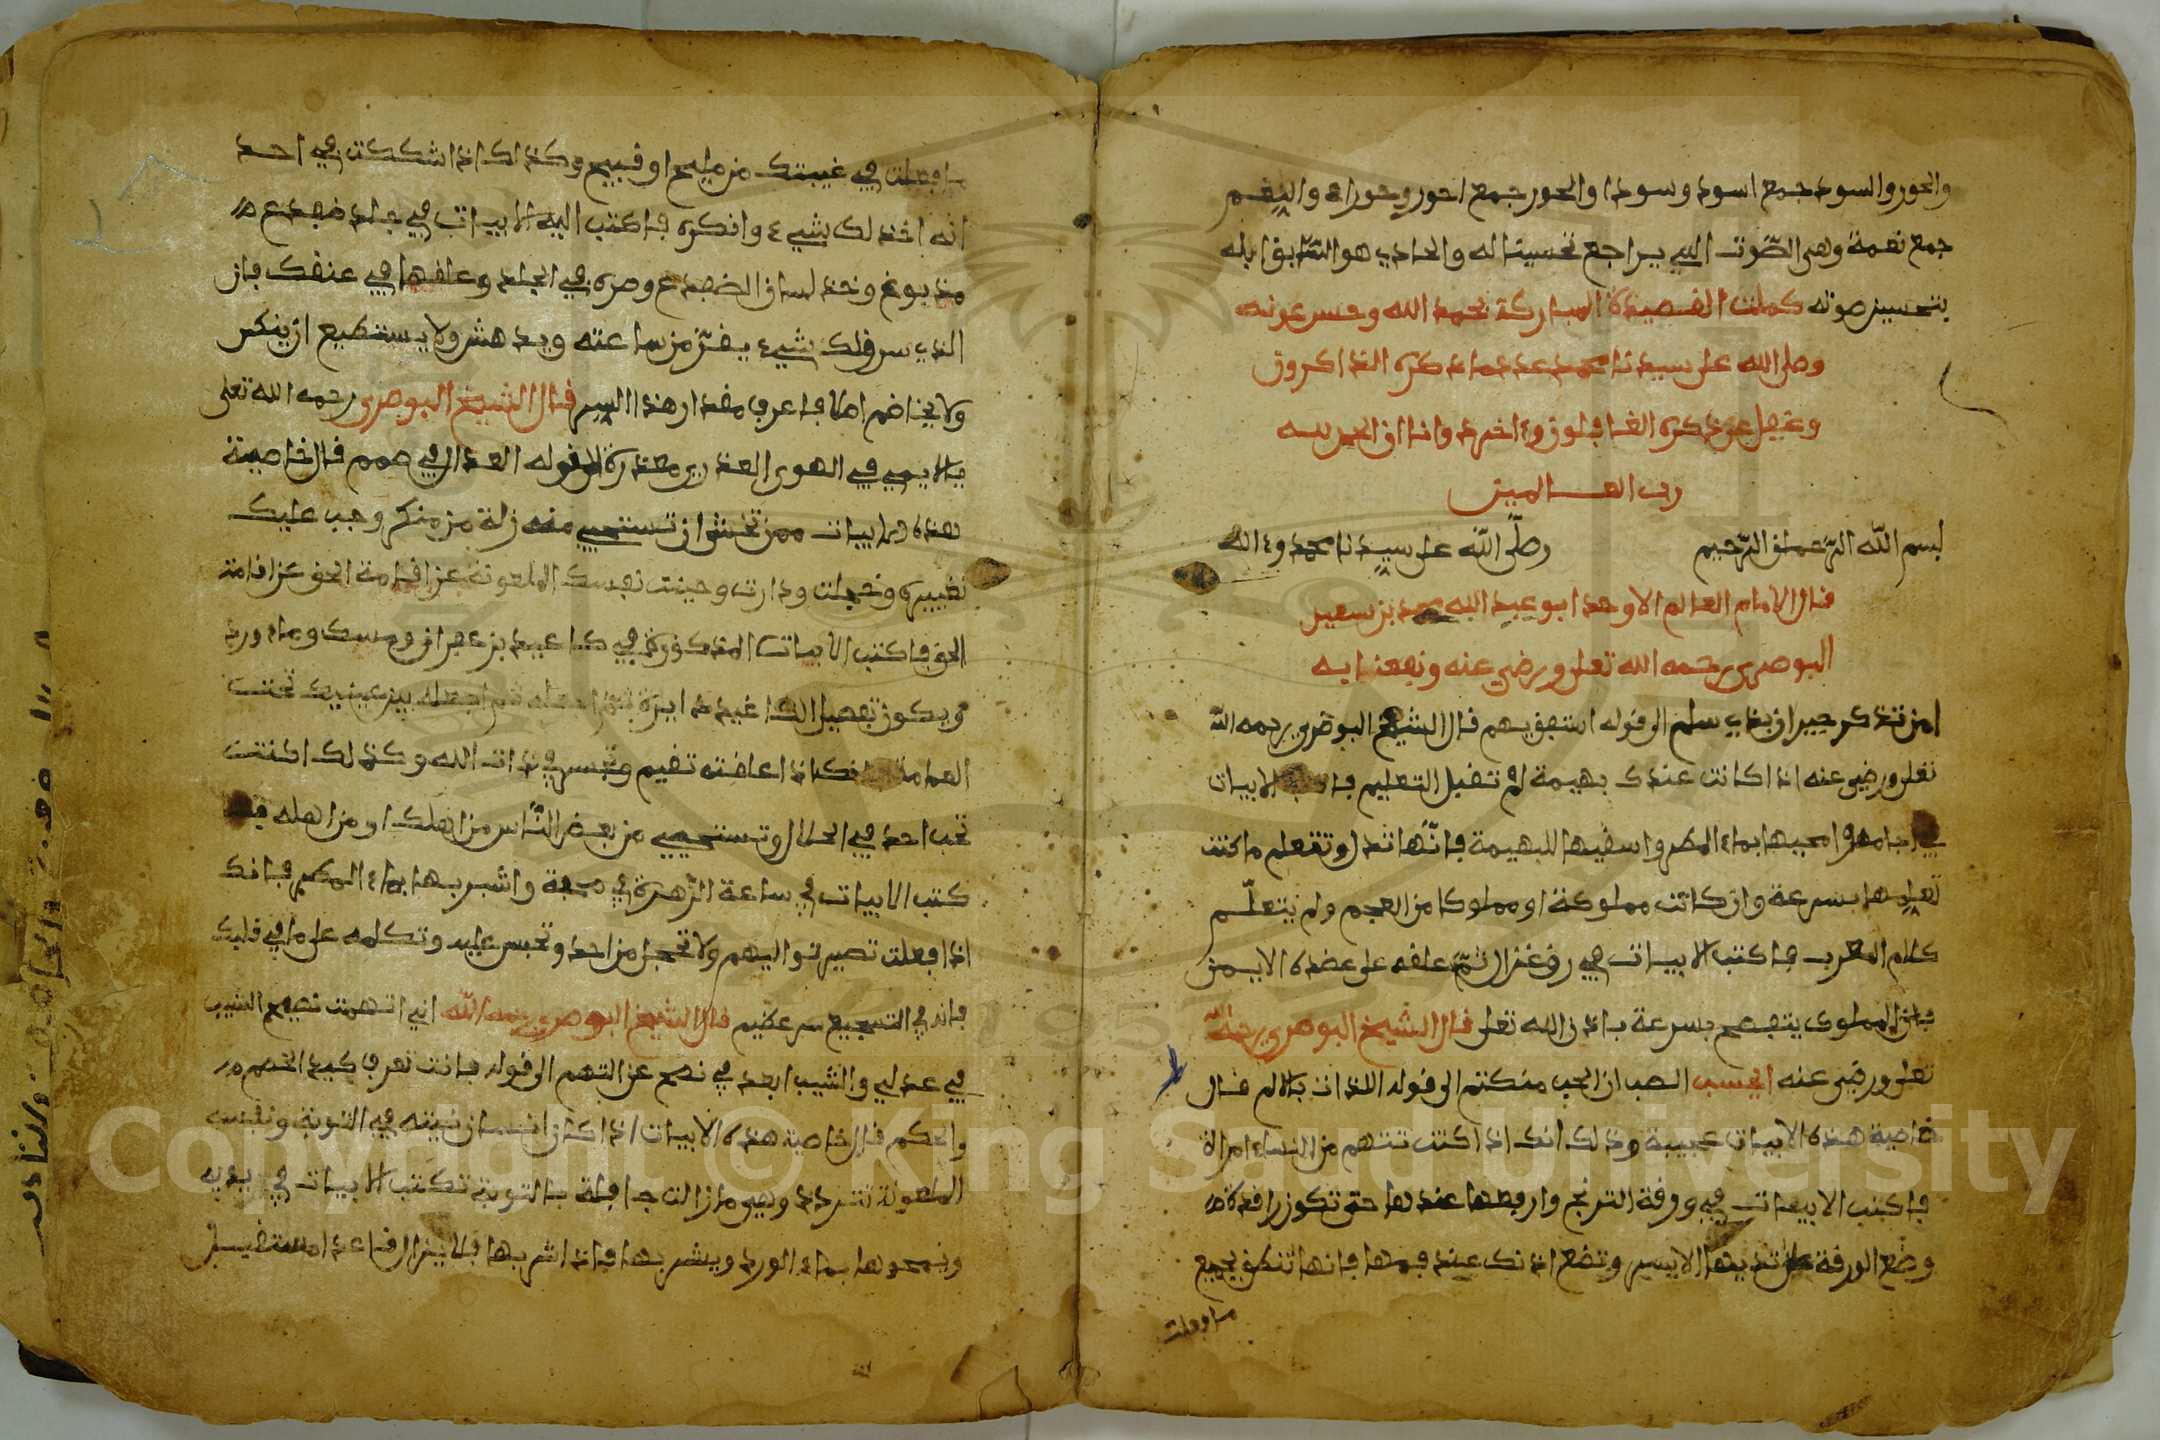 والحور والسود جمع اسود وسودا والحور جمع احور وحوراء والنغم
جمع نغمة وهى الصّوت الذي يراجع تحسينا له والحادي هو السّابق ابله
بتحسين صوته كملت القصيدة المباركة بحمد الله وحسن عونه
وصلى الله على سيدنا محمد عدد ما ذكره الذاكرون
وغفل عن ذكره الغافلون وءاخر دعوانا ان الحمد لله
رب العالمين
بسم الله الرّحمان الرّحيم وصلّى اللّه على سيدنا محمد وءاله
قال الامام العالم الاوحد ابو عبد الله محمد بن سعيد
البوصري رحمه الله تعلى ورضي عنه ونفعنا به
امن تذكر جيران بذي سلم الى قوله استفق يهم قال الشيخ البوصري رحمه الله
تعلى ورضي عنه اذا كانت عندك بهيمة لم تقبل التعليم الابيات
في جام وامحيها بماء المطر واسقيها للبهيمة فانّها تذل وتتعلم ما كنت
تعلمها بسرعة وان كانت مملوكة او مملوكا من العجم ولم يتعلّم
كلام العرب فاكتب الابيات في رق غزال ثمّ علقه على عضده الايمن
فان المملوك يتفصح بسرعة باذن الله تعلى قال الشيخ البوصري رحمه اللّه
تعلى ورضي عنه ايحسب الصب ان الحب منكتم الى قوله اللذات بالالم قال
خاصية هذه الابيات عجيبة وذلك انك اذا كنت تتهم من النساء امراة
فاكتب الابيات في ورقة الترنج وارصدها عندها حتى تكون راقدة
وضع الورقة على ثديها الايسر وتضع اذنك عند فمها فانها تنطق بجميع
ما فعلت
ما فعلت في غيبتك من مليح او قبيح وكذلك اذا شككت في احد
انه اخذ لك شيء وانكره فاكتب اليه الابيات في جلد ضفدع
مدبوغ وخذ لسان الضفدع وصره في الجلد وعلقها في عنقك فان
الذي سرق لك شيء يقرّ من ساعته ويدهش ولا يستطيع ان ينكر
ولا يخاصم اصلا فاعرف مقدار هذا السر قال الشيخ البوصري رحمه الله تعلى
يا لايمي في الهوى العذري معذرة الى قوله العذال في صمم قال خاصية
هذه الابيات ممن تخشى ان تستحيي منه زلة من منكر وجب عليك
تغييره وخجلت ودارت وجبنت نفسك الملعونة عن اقامة الحق عن اقامة
الحق فاكتب الابيات المذكورة في كاغيد بزعفران ومسك وماء ورد
ويكون تفصيل الكاغيد دايرة ثم اجعله بين عينيك تحت
العمامة فانك اذا علقته تقيم وتجسر في ذات الله وكذلك ان كنت
تحب احد في الحلال وتستحيي من بعض النّاس من اهلك او من اهله
كتب الابيات في ساعة الزّهرة في صحفة واشربها بماء المطر فانك
اذا فعلت تصير تواليهم ولا تخجل من احد وتجس عليه وتكلمه على ما في قلبك
فانه في التشجيع سر عظيم قال الشيخ البوصري رحمه اللّه اني اتهمت نصيح الشيب
في عذلي والشيب ابعد في نصح عن التهم الى قوله فانت تعرف كيد الخصم
والحكم قال خاصية هذه الابيات اذا كان انسان نيته في التوبة ونفسه
الملعونة تتردد وهي ما زالت جافلة بالتوبة تكتب الابيات في يديه
ويمحوها بماء الورد ويشربها فاذا شربها فلا يزال قاعدا مستقبل